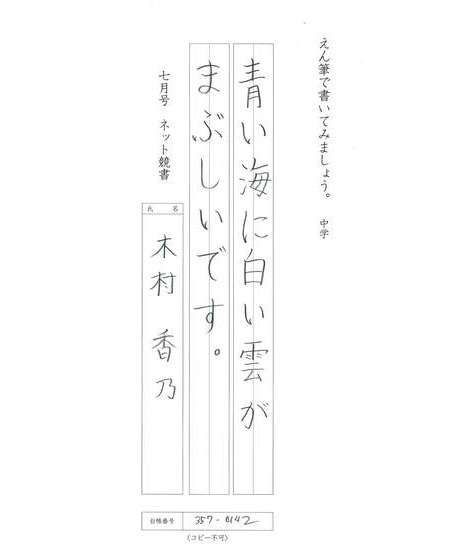 えん筆で書いてみましょう。 中学
青い海に白い雲が
まぶしいです。
七月号 ネット競書
氏名
木村 香乃
台帳番号 357-0142
(コピー不可)